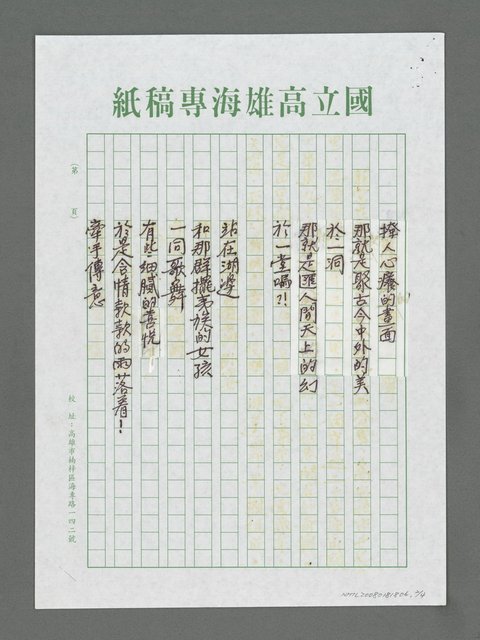 國立高雄海專稿紙
撩人心癢的畫面
那就是聚古今中外的美
於一洞
那就是匯人間天上的幻
於一堂嗎?!
站在湖邊
和那群擺夷族的女孩
一同歌舞
有些細膩的喜悅
於是含情款款的雨落着！
牽手傳意
（第　頁）
校址：高雄市楠梓區海專路一四二號
NMTL20080181806, 2/4